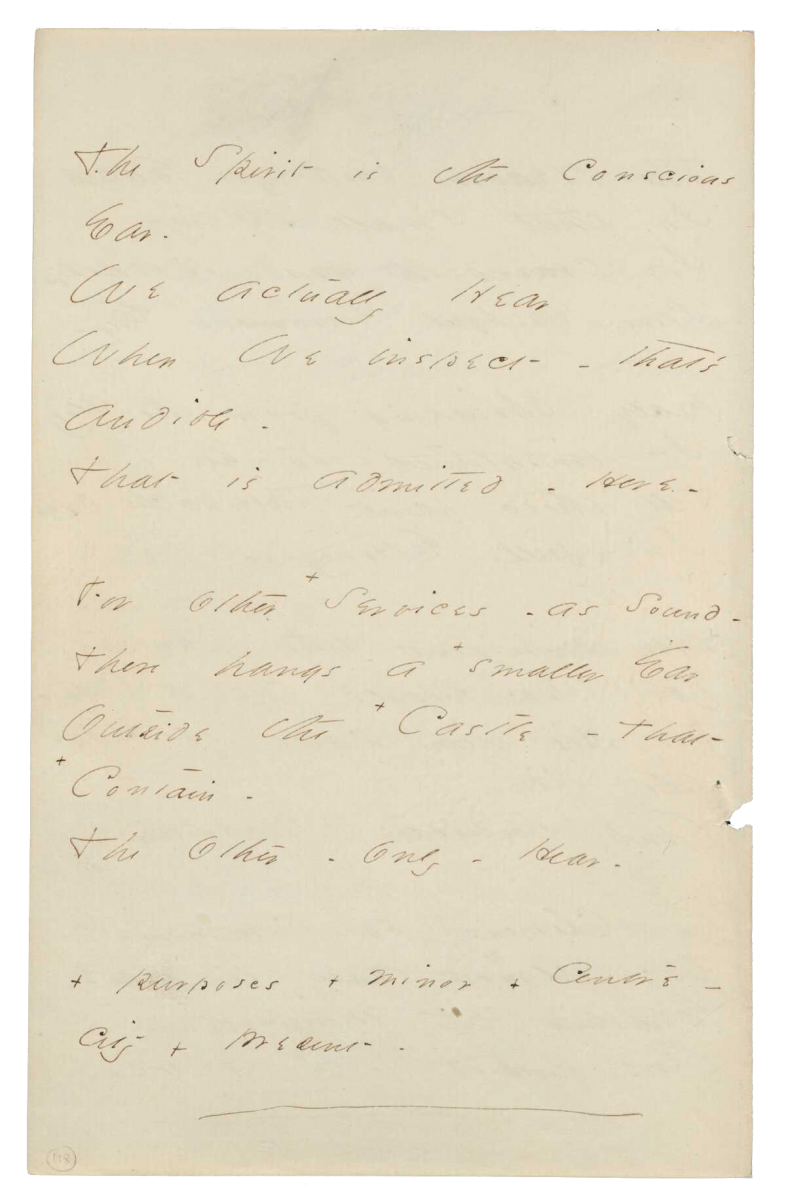 The Spirit is the Conscious
Ear.
We actually Hear
When We inspect - that's
audible -
That is admitted - Here -
For other + Services - as Sound -
There hangs a + smaller Ear
Outside the + Castle - that
+ Contain -
The Other - Only - Hear -
+ purposes + minor + Centre -
City + present -
118